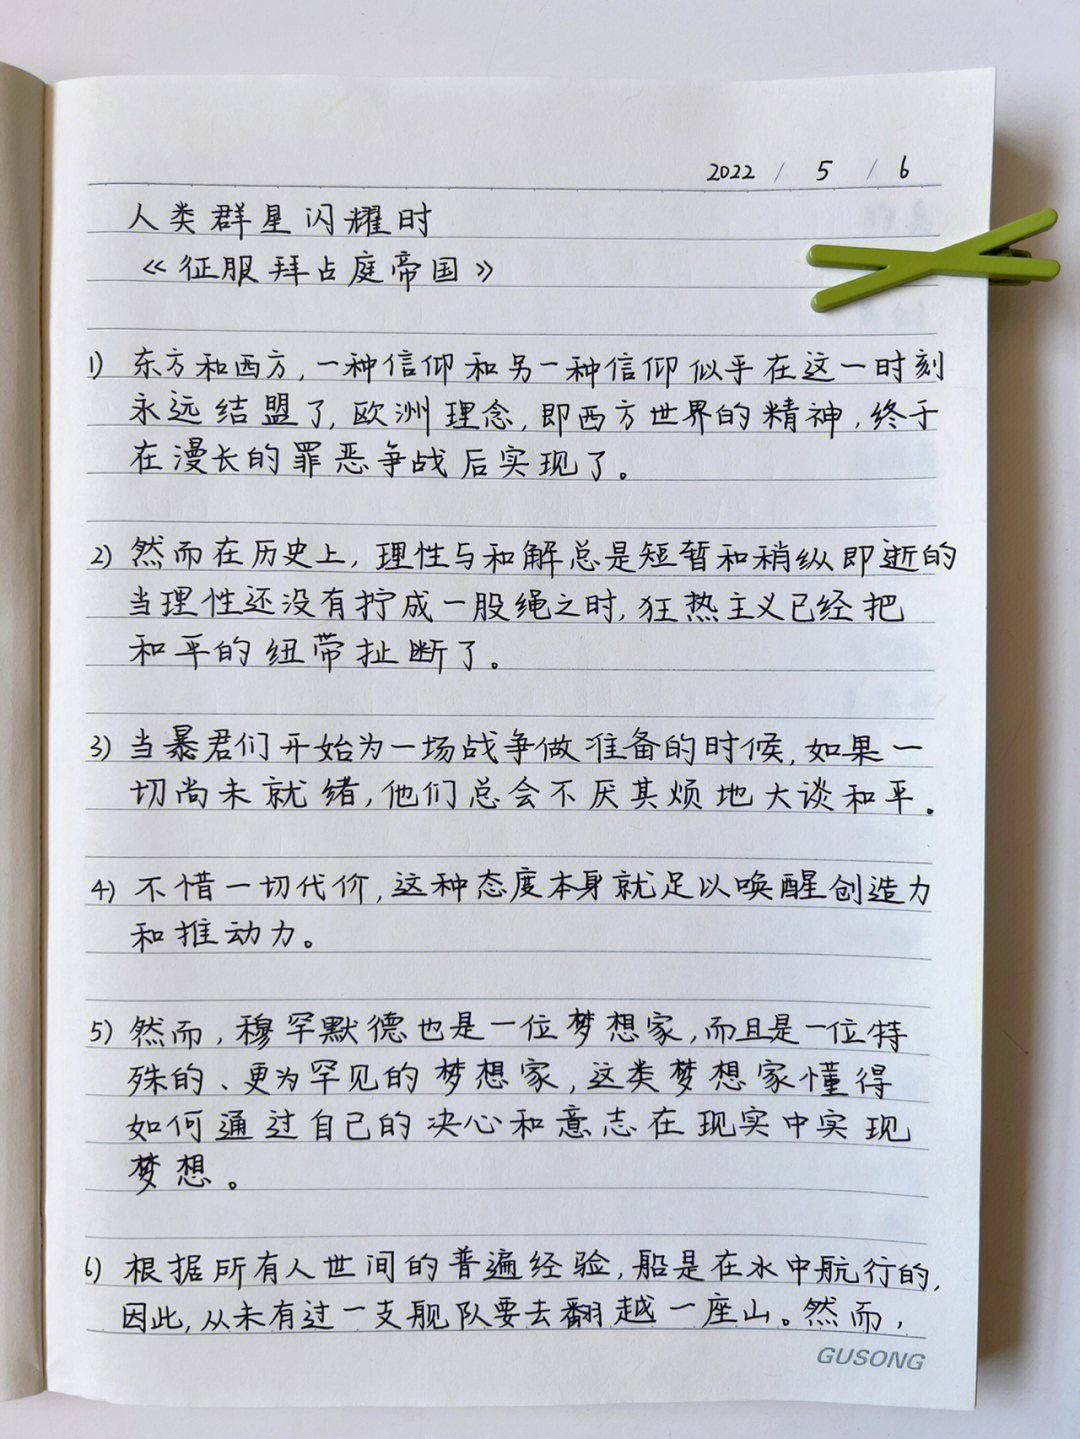 2022 / 5 / 6
人类群星闪耀时
《征服拜占庭帝国》
1) 东方和西方,一种信仰和另一种信仰似乎在这一时刻
永远结盟了,欧洲理念,即西方世界的精神,终于
在漫长的罪恶争战后实现了。
2) 然而在历史上,理性与和解总是短暂和稍纵即逝的
当理性还没有拧成一股绳之时,狂热主义已经把
和平的纽带扯断了。
3) 当暴君们开始为一场战争做准备的时候,如果一
切尚未就绪,他们总会不厌其烦地大谈和平。
4) 不惜一切代价,这种态度本身就足以唤醒创造力
和推动力。
5) 然而,穆罕默德也是一位梦想家,而且是一位特
殊的、更为罕见的梦想家,这类梦想家懂得
如何通过自己的决心和意志在现实中实现
梦想。
6) 根据所有人世间的普遍经验,船是在水中航行的,
因此,从未有过一支舰队要去翻越一座山。然而,
GUSONG